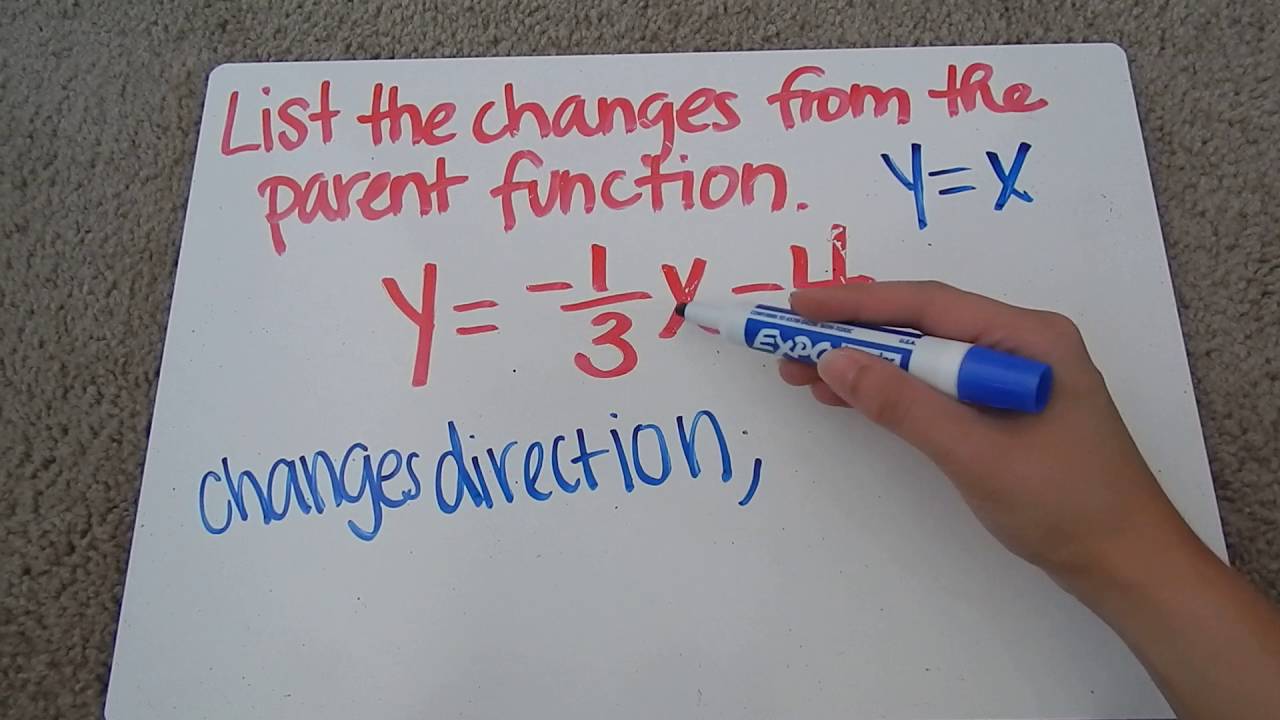 List the changes from the
parent function. y=x
y = -1/3 x - 4
EXPO
U.S.A.
changes direction,